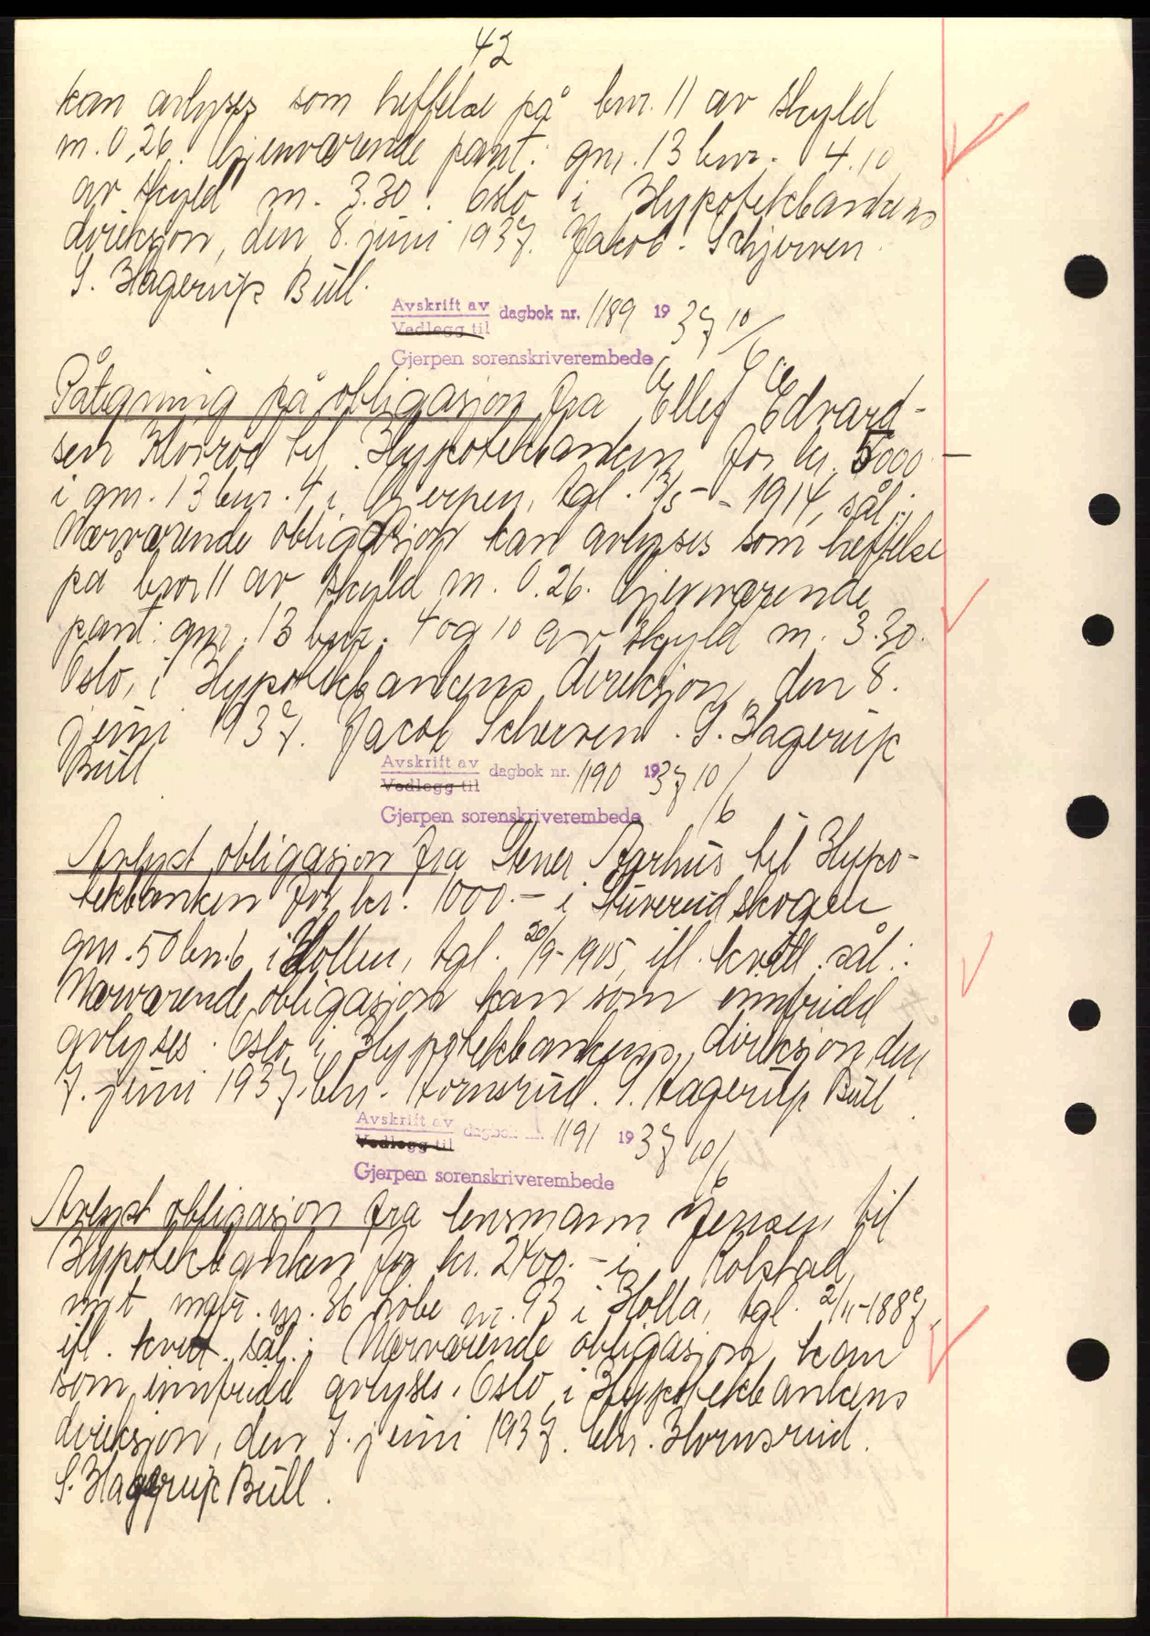 42
kan avlyses som heftelse på bnr. 11 av skyld
m. 0,26. Gjenværende pant: gnr. 13 bnr. 4.10
av skyld m. 3.30. Oslo i Hypotekbankens
direksjon, den 8. juni 1937. Jacob Schjerven
S. Hagerup Bull.
Avskrift av
Vedlegg til dagbok nr. 1189 1937 10/6
Gjerpen sorenskriverembede
Påtegning på obligasjon fra Ellef Edvard-
sen til Hypotekbanken for kr. 5000.—
i gnr. 13 bnr. 4 i Gjerpen, tgl. 12/5 - 1914, sål.:
Nærværende obligasjon kan avlyses som heftelse
på bnr 11 av skyld m. 0.26. Gjenværende
pant: gnr. 13 bnr. 4 og 10 av skyld m. 3.30.
Oslo, i Hypotekbankens direksjon, den 8.
juni 1937. Jacob Scherven. S. Hagerup
Bull
Avskrift av
Vedlegg til dagbok nr. 1190 1937 10/6
Gjerpen sorenskriverembede
Avlyst obligasjon fra Stener Aarhus til Hypo-
tekbanken for kr. 1000.- i Stuverudskogen
gnr. 50 bn. 6 i Holden, tgl. 20/9-1905, ifl. kvitt. sål.:
Nærværende obligasjon kan som innfridd
avlyses. Oslo, i Hypotekbankens direksjon, den
7. juni 1937. Chr. Hornsrud. S. Hagerup Bull.
Avskrift av
Vedlegg til dagbok nr. 1191 1937 10/6
Gjerpen sorenskriverembede
Avlyst obligasjon fra lensmann Jensen til
Hypotekbanken for kr. 2400.- i Kolstad,
nytt matr. nr. 36 løbe nr. 93 i Holla, tgl. 2/11-1887,
ifl. kvitt. sål.: Nærværende obligasjon kan
som innfridd avlyses. Oslo, i Hypotekbankens
direksjon, den 7. juni 1937. Chr. Hornsrud.
S. Hagerup Bull.